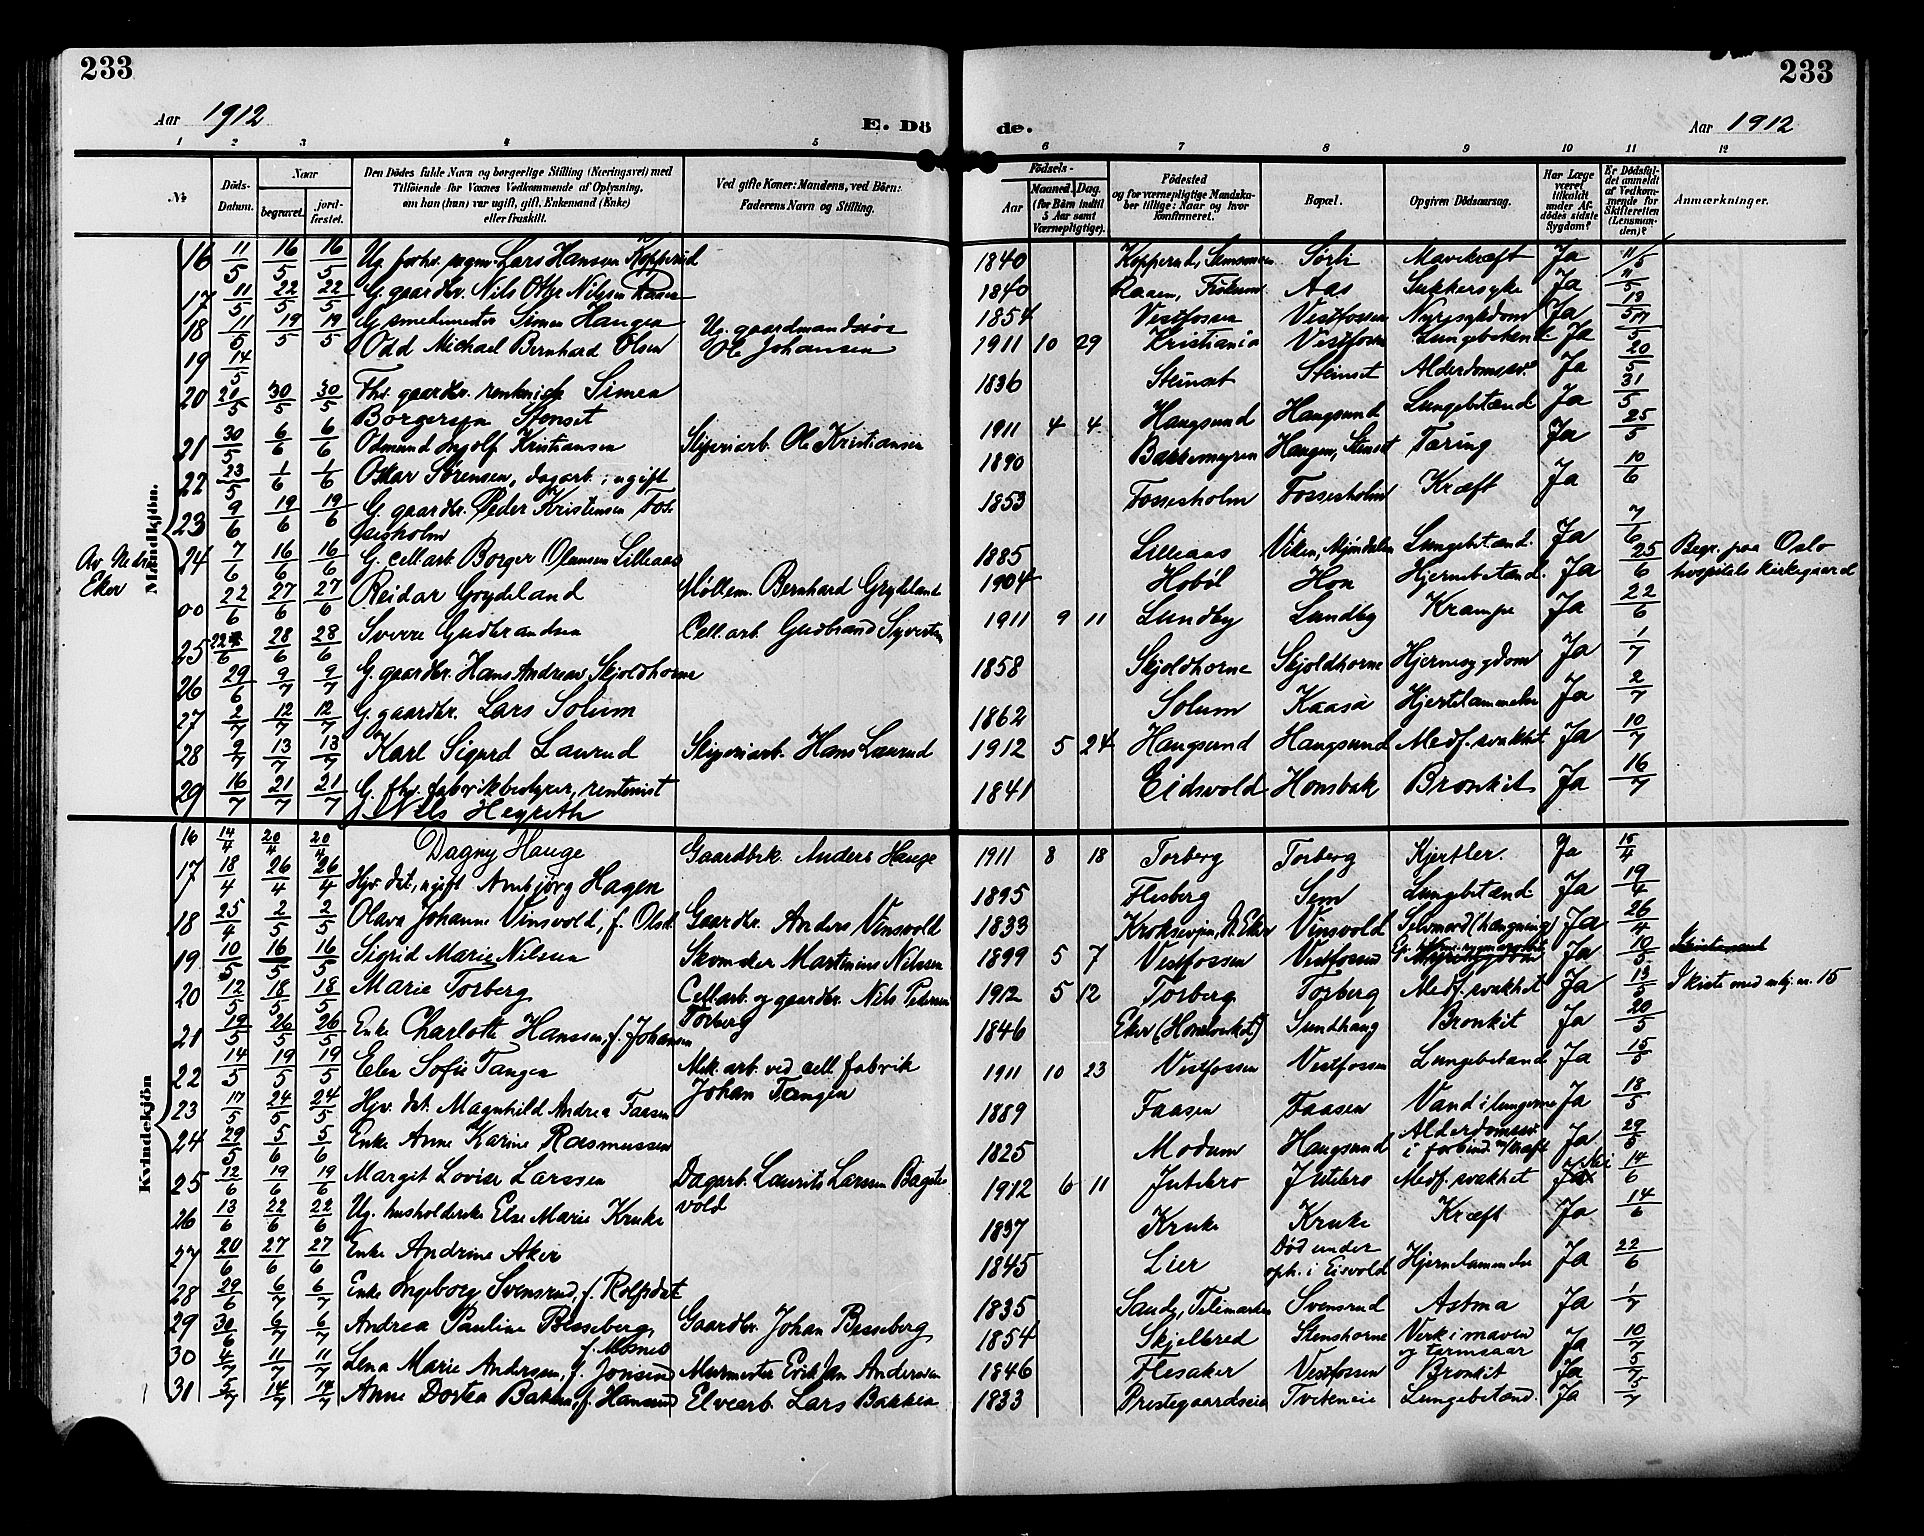 233
233
Aar 1912
E. Dö
de.
Aar 1912
1 2 3 4 5 6 7 8 9 10 11 12
№
Döds-Datum.
Naar
begravet.
jordfæstet.
Den Dödes fulde Navn og borgerlige Stilling (Næringsvei) med
Tilföiende for Voxnes Vedkommende af Oplysning,
om han (hun) var ugift, gift, Enkemand (Enke)
eller fraskilt.
Ved gifte Koner: Mandens, ved Börn:
Faderens Navn og Stilling.
Födsels-
Aar
Maaned. Dag.
(for Börn indtil
5 Aar samt
Værnepligtige).
Födested
og for værnepligtige Mandska-
ber tillige: Naar og hvor
konfirmeret.
Bopæl.
Opgiven Dödsaarsag.
Har Læge
været
tilkaldt
under Af-
dödes sidste
Sygdom?
Er Dödsfal-
det anmeldt
af Vedkom-
mende for
Skifteretten
(Lensman-
den)?
Anmærkninger.
Mandkjön.
16 11/5 16/5 16/5 Ug. forhv. Lars Hansen Kopperud 1840 Kopperud, Sörbi Mavekræft Ja 11/5
17 11/5 22/5 22/5 G. gaardbr. Nils Otto Nilssen Raaen 1840 Raaen, Fiskum Aas Sukkersyke Ja 11/5
18 11/5 19/5 19/5 G. smedmester Simen Haugen 1854 Vestfossen Vestfossen Nyresykdom Ja
19 14/5 Odd Michael Bernhard Olsen Ug. gaardmandssøn
Ole Johansen 1911 10 29 Kristiania Vestfossen Ja
20 20/5 30/5 30/5 Fhv. gaardbr. Simen
Borgersen Stenset 1836 Steinset Steinset Ja
21 30/5 6/6 6/6 Odmund Ingolf Kristiansen Sliperiarb. Ole Kristiansen 1911 4 4 Haugsund Haugsund Lungebetænd. Ja 31/5
22 23/5 1/6 1/6 Oskar Sörensen, dagarb., ugift 1890 Bakkemyren Haugen, Stenset Tæring Ja 25/5
23 9/6 19/6 19/6 G. gaardbr. Peder Kristensen Fos-
sesholm 1853 Fossesholm Fossesholm Kræft Ja 10/6
24 7/6 16/6 16/6 G. cell.arb. Borger Olausen Lilleaas 1885 Lilleaas Viken, Mjøndalen Lungebetænd. Ja 7/6
Av Nedre
Eker
00 22/6 27/6 27/6 Reidar Grydeland Møllem. Bernhard Grydeland 1904 Hobøl Hon Hjernebetænd. Ja 25/6 Begr. paa Oslo
hospitals kirkegaard
25 22/6 28/6 28/6 Sverre Gudbrandsen Cell.arb. Gudbrand Syvertsen 1911 9 11 Lundby Lundby Krampe Ja 22/6
26 29/6 9/7 9/7 G. gaardbr. Hans Andreas Skjoldhorne 1858 Skjoldhorne Skjoldhorne Hjernesygdom Ja 1/7
27 2/7 12/7 12/7 G. gaardbr. Lars Solum 1862 Solum Kaasa Hjertelammelse Ja 2/7
28 9/7 13/7 13/7 Karl Sigurd Laurud Sliperiarb. Hans Laurud 1912 5 24 Haugsund Haugsund Medf. svakhet Ja 10/7
29 16/7 21/7 21/7 G. fhv. fabrikbestyrer, rentenist
Nils Hegreth 1841 Eidsvold Honsbak Bronkit Ja 16/7
Kvindekjön
16 14/4 20/4 20/4 Dagny Hauge Gaardbrk. Anders Hauge 1911 8 18 Torberg Torberg Kjertler. Ja 15/4
17 18/4 26/4 26/4 Hjv. dat., ugift Anbjörg Hagen 1895 Flesberg Sem Lungebetænd. Ja 19/4
18 25/4 2/5 2/5 Olava Johanne Vinsvold, f. Olsd. Gaardbr. Anders Vinsvold 1833 Vinsvold Selvmord (hængning) Ja 26/4
19 10/5 16/5 16/5 Sigrid Marie Nilsen Skomaker Martinius Nilssen 1899 5 7 Vestfossen Vestfossen Ja 10/5
20 12/5 18/5 18/5 Marie Torberg Cell.arb. og gaardbr. Nils Petersen
Torberg 1912 5 12 Torberg Torberg Medf. svakhet Ja 13/5 I kiste med nr. 15
21 19/5 26/5 26/5 Enke Charlotte Hansen, f. Johansen 1846 Eker Sundhaug Bronkit Ja 20/5
22 14/5 19/5 19/5 Elen Sofie Tangen Mek. arb. ved cell. fabrik
Johan Tangen 1911 10 23 Vestfossen Vestfossen Lungebetænd Ja 15/5
23 17/5 24/5 24/5 Hjv. dat. Magnhild Andrea Faasen 1889 Faasen Faasen Vand i lungerne Ja 18/5
24 29/5 5/6 5/6 Enke Anne Karine Rasmussen 1825 Modum Haugsund Alderdomssv.
i forbind. m/ kræft Ja 29/5
25 12/6 19/6 19/6 Margit Lovise Larssen Dagarb. Laurits Larssen
vold 1912 6 11 Julebro Julebro Medf. svakhet Nei 14/6
26 13/6 22/6 22/6 Ug. husholderske Else Marie Kruke 1837 Kruke Kruke Kræft Ja 14/6
27 20/6 27/6 27/6 Enke Andrine Aker 1845 Lier Död under
oph. i Eisvold Hjernelammelse Ja 22/6
28 29/6 6/7 6/7 Enke Ingeborg Svensrud, f. Rolfsdat 1835 Sande, Telemarken Svensrud Astma Ja 1/7
29 30/6 6/7 6/7 Andrea Pauline Besseberg, Gaardbr. Johan Besseberg 1854 Skjelbred Stenshorne Verk i maven
og tarmsaar Ja 10/7
30 4/7 11/7 11/7 Lena Marie Andersen, f. Jonsrud Murmester Erik Jan Andersen 1846 Flesaker Vestfossen Bronkit Ja 5/7
31 5/7 14/7 14/7 Anne Dortea Bakken, f. Hansen Elvearb. Lars Bakken 1833 Prestegaardseie Tveteneie Lungebetænd. Ja 5/7